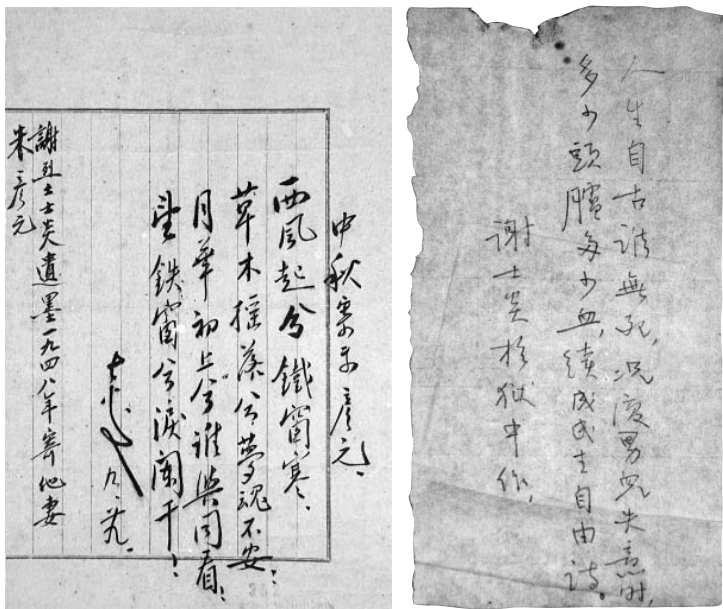 中秋寄 彦元、
西風起兮鐵窗寒、
草木摇落兮夢魂不安、
月華初上兮誰與同看、
望鉄窗兮淚闌干！
士炎
謝烈士士炎遺墨一九四八年寄他妻
朱彦元
人生自古誰無死，况復男兒失意時，
多少頭臚多少血，續成民主自由詩。
謝士炎於獄中作，